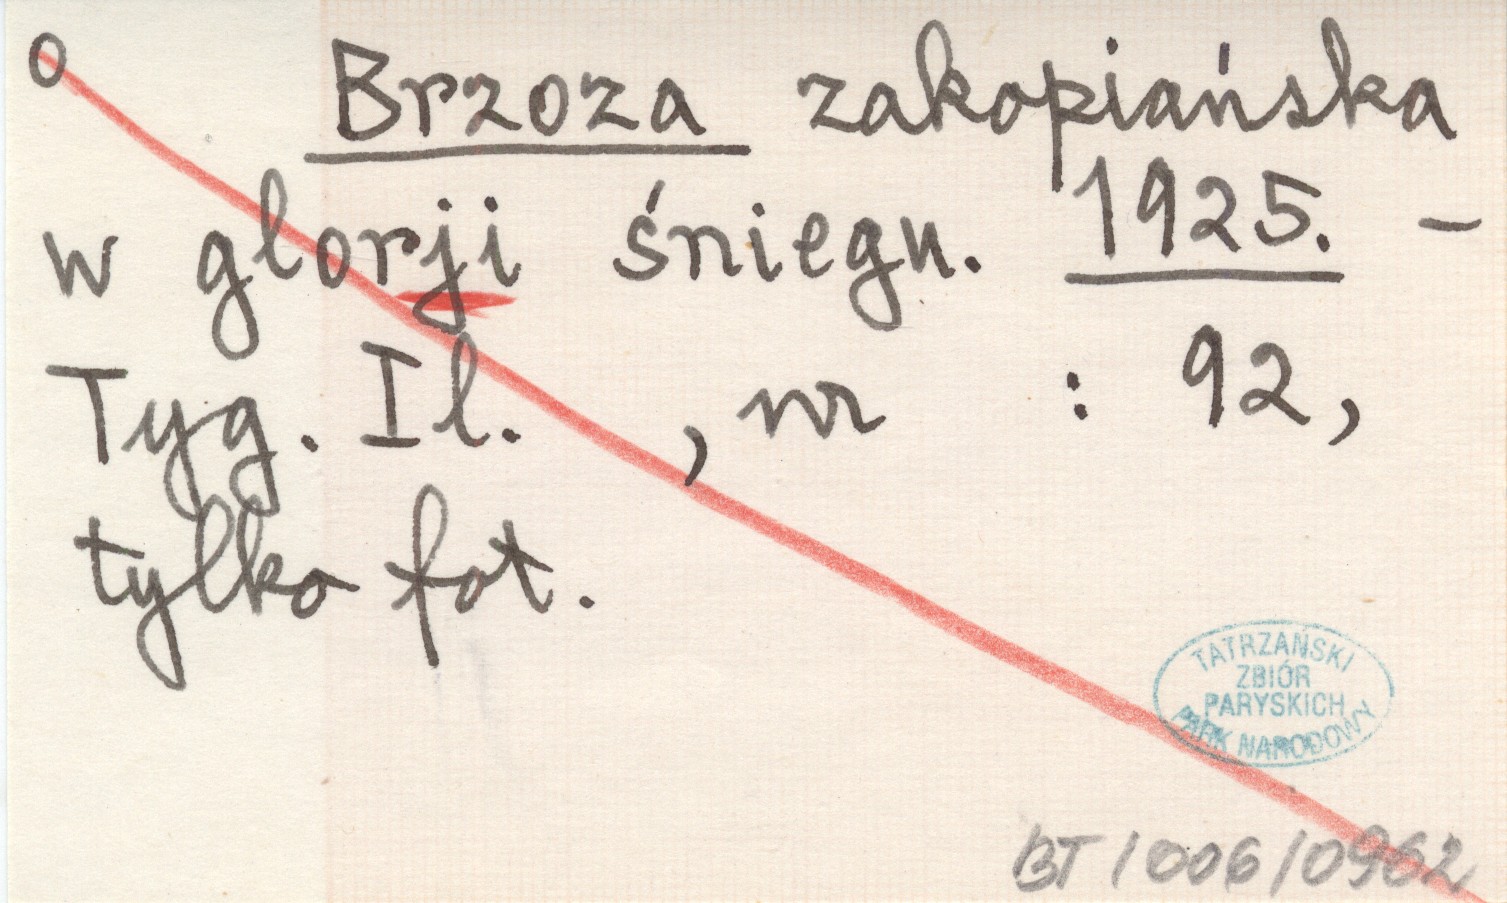 o Brzoza zakopiańska
w glorji śniegu. 1925. –
Tyg. Il. , nr : 92,
tylko fot.
TATRZAŃSKI
ZBIÓR
PARYSKICH
PARK NARODOWY
BT/006/0962